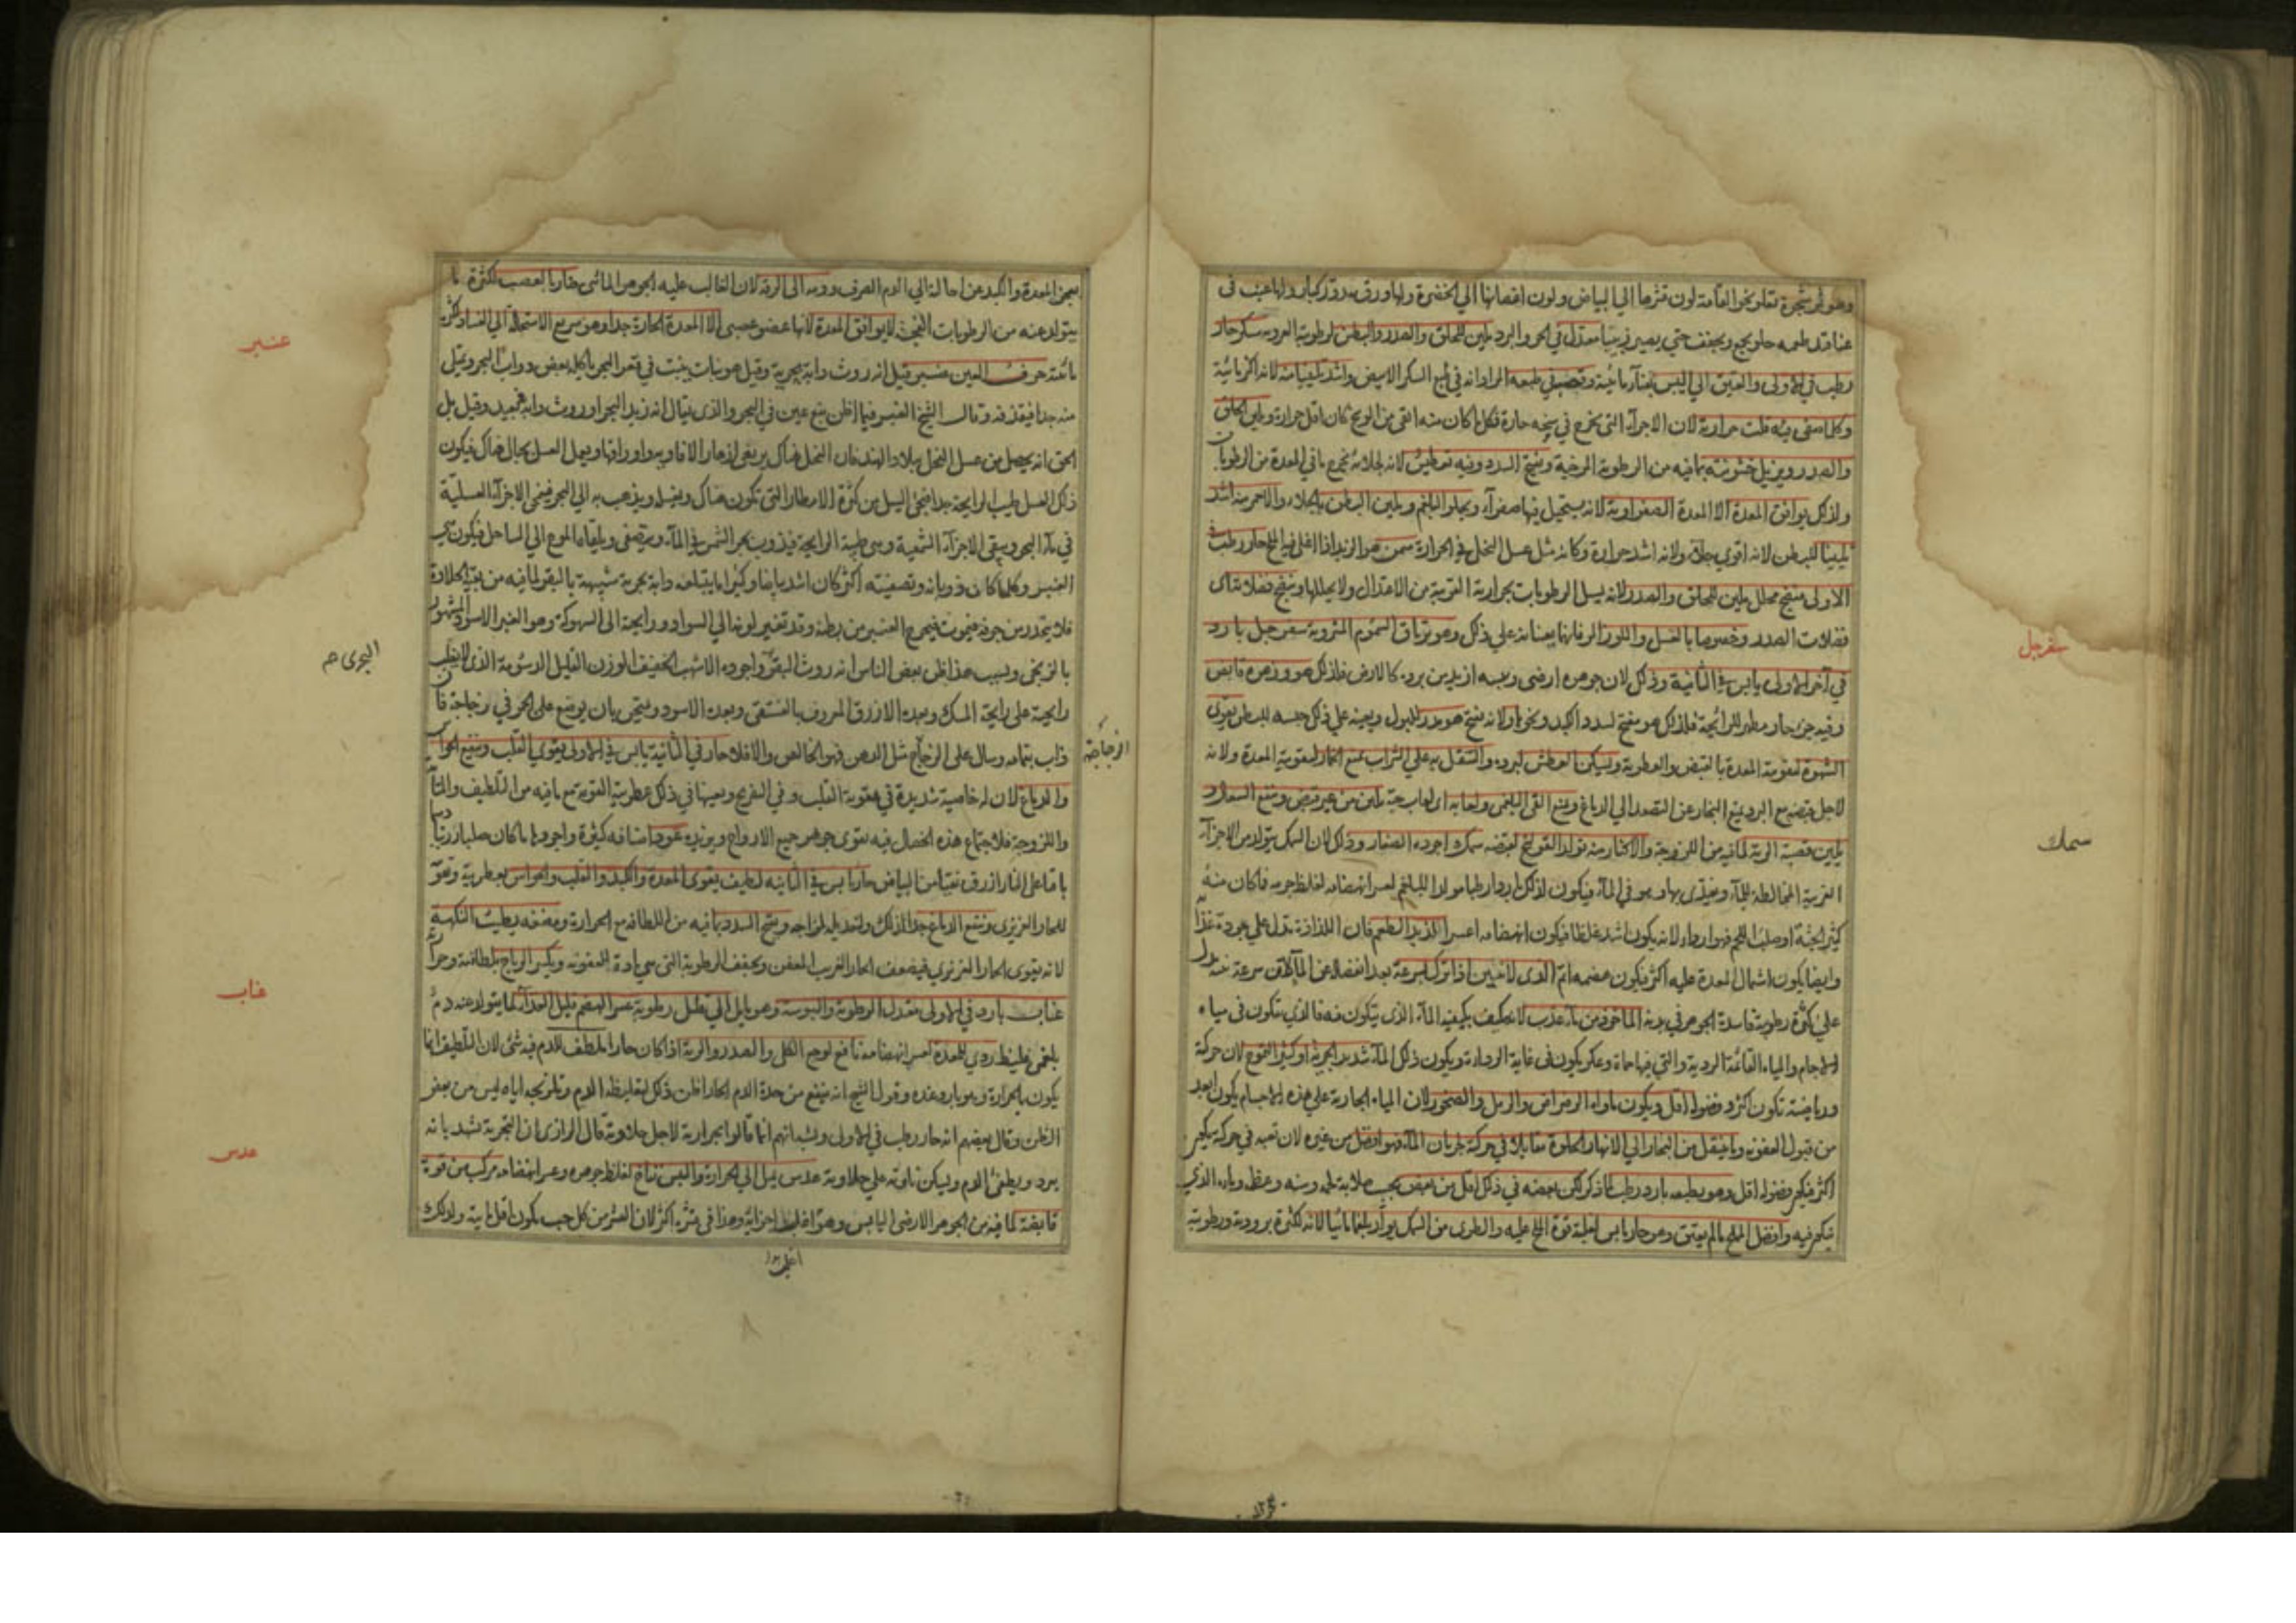 وهو ثمر شجرة تعلو نحو القامة لون قشرها الي البياض ولون اغصانها الي الخضرة ولها ورق مدور كبار ولها عنب في
عناقيد طعمه حلو يجمع ويجفف حتي يصير زبيبا معتدل في الحر والبرد ملين للحلق والصدر والبطن لرطوبته سكر حار
رطب في الاولى والعتيق الي اليبس
وكلما صفى منه قلت حرارته لان الاجزآء التي تخرج حارة فكل ما كان منه انقى من الوسخ كان اقل حرارة ويلين الحلق
والصدر ويزيل خشونته بما فيه من الرطوبة المرخية ويفتح السدد وفيه تعطيش لانه بجلائه يخرج ما في المعدة من الرطوبات
ولذلك يوافق المعدة الا المعدة الصفراوية لانه يستحيل فيها صفرآء ويجلو البلغم ويلين البطن بالجلاء والاحمر منه اشد
تليينا للبطن لانه اقوي جلاء ولانه اشد حرارة وكانه مثل عسل النحل في الحرارة سمن هو الزبد اذا اغلى فيه الملح حار رطب في
الاولى منضج محلل ملين للحلق والصدر لانه يسيل الرطوبات بحرارته القريبة من الاعتدال ولا يحللها وينضج فضلات اي
فضلات الصدر وخصوصا بالعسل واللوز المر فانهما يعينانه علي ذلك وهو ترياق السموم المشروبة سفرجل بارد
في آخر الاولى يابس في الثانية وذلك لان جوهره ارضى ويبسه ازيد من برده كالارض فلذلك هو وزهره قابض
وفيه جزء حار مطهر للرائحة فلذلك هو مفتح لسدد الكبد ونحوها ولانه مفتح هو مدر للبول ويعينه علي ذلك حبسه للبطن يقوي
الشهوة لتقوية المعدة بالقبض والعطرية ويسكن العطش لبرده والتنقل به علي الشراب يمنع الخمار لتقوية المعدة ولانه
لاجل قبضه مع البرد يمنع البخار عن التصعد الي الدماغ ويمنع القئ البلغمى ولعابه اي لعاب حبه يلين من غير قبض وينفع السعال و
يلين قصبة الرية لما فيه من اللزوجة والاكثار منه يولد القولنج لقبضه سمك اجوده الصغار وذلك لان السمك يتولد من الاجزآء
الغريبة المخالطة للمآء ويغتذي بها وهو في المآء فيكون لذلك باردا رطبا مولدا للبلغم لعسر انهضامه لغلظ جرمه فما كان منه
كثير الجثة او صلب اللحم فهو اردا لانه يكون اشد غلظا فيكون انهضامه اعسر اللذيذ الطعم فان اللذاذة تدل علي جودة غذآء
وايضا يكون اشتمال المعدة عليه اكثر فيكون هضمه اتم الذي لا ينتن اذا ترك بسرعة بعد انفصاله عن المآء لان سرعة نتنه تدل
علي كثرة رطوبة فاسدة الجوهر في بدنه الماخوذ من مآء عذب لانه يتكيف بكيفية المآء الذي يتكون فيه فالذي يتكون في مياه
الاجام والمياه القائمة الردية والتي فيها حماة وعكر يكون في غاية الرداءة ويكون ذلك المآء شديد الجرية او كثير التموج لان حركة
ورياضته تكون اكثر وفضوله اقل ويكون ماواه الرضراض والرمل والصخور لان المياه الجارية علي هذه الاجسام يكون ابعد
من قبول العفونة وما ينتقل من البحار الي الانهار الحلوة مقابلا في حركته لجريان المآء فهو افضل من غيره لان تعبه في حركة تكون
اكثر فيكون فضوله اقل وهو بطبعه بارد رطب لما ذكر لكن بعضه في ذلك اقل من بعض بحسب صلابة لحمه وسنه وعظمه ومآءه الذي
يتكون فيه وافضل المالح ما لم يعتق وهو حار يابس لغلبة قوة الملح عليه والطري من السمك يولد بلغما مائيا لانه لكثرة برودته ورطوبته
سفرجل
سمك
يعجز المعدة والكبد عن احالته الي الدم الصرف ودمه الى الرقة لان الغالب عليه الجوهر المائى ضار بالعصب لكثرة ما
يتولد عنه من الرطوبات الفجة لا يوافق المعدة لانها عضو عصبى الا المعدة الحارة جدا وهو سريع الاستحالة الي الفساد لكثرة
مائيته حرف العين عنبر قيل انه روث دابة بحرية وقيل هو نبات ينبت في قعر البحر ياكله بعض دواب البحر ويمتلى
منه جدا فيقذفه وقال الشيخ العنبر فيما اظن نبع عين في البحر والذي يقال انه زبد البحر او روث دابة بعيد وقيل بل
الحق انه يحصل من عسل النحل ببلاد الهند فان النحل هناك يرتعى ازهار الافاويه واوراقها ويعمل العسل بجبال هناك فيكون
ذلك العسل طيب الرايحة جدا فيجئ السيل من كثرة الامطار التي تكون هناك ويغسله ويذهب به الي البحر فيفنى الاجزآء العسلية
في مآء البحر ويبقى الاجزآء الشمعية وهي طيبة الرايحة فيذوب بحر الشمس في المآء ويتصفى ويلقيه الموج الي الساحل فيكون هو
العنبر وكلما كان ذوبانه وتصفيته اكثر كان اشد بياضا وكثيرا ما يبتلعه دابة بحرية شبيهة بالبقر لما فيه من بقية الحلاوة
فلا يتحدر من جوفه فيموت فيخرج العنبر من بطنه وقد تغير لونه الي السواد ورايحته الى السهوكة وهو العنبر الاسود المشهور
بالزنجى وبسبب هذا ظن بعض الناس انه روث البقر واجوده الاشهب الخفيف الوزن القليل الدسومة الذي لا يغلب
رايحته على رايحة المسك وبعده الازرق المعروف بالفستقى وبعده الاسود ويمتحن بان يوضع على الجمر في زجاجة فان
ذاب بتمامه وسال على الزجاج مثل الدهن فهو الخالص والا فلا حار في الثانية يابس في الاولى يقوي القلب وينفع الحواس
والدماغ لان له خاصية شديدة في تقوية القلب وفي التفريح ويعينها في ذلك عطريته القوية مع ما فيه من التلطيف والمتانة
واللزوجة فلاجتماع هذه الخصال فيه تقوى جوهر جميع الارواح ويزيده عود اصنافه كثيرة واجودها ما كان صلبا رزينا دسما
باقيا على النار ازرق نقيا من البياض حار يابس في الثانية لطيف يقوى المعدة والكبد والقلب والحواس بعطريته وتقوية
للحار الغريزي وينفع الدماغ جدا لذلك ولتعديله لمزاجه ويفتح السدد بما فيه من اللطافة مع الحرارة ومضغه يطيب النكهة
لانه يقوى الحار الغريزي فيضعف الحار الغريب المعفن ويجفف الرطوبة التي هي مادة للعفونة ويكسر الرياح بلطافته وحرارته
عناب بارد في الاولى معتدل الرطوبة واليبوسة وهو مايل الي قليل رطوبة عسر الهضم قليل الغذآء لما يتولد عنه دم
بلغمى غليظ ردي للمعدة لعسر انهضامه نافع لوجع الكلى والصدر والرية اذا كان حارا ملطف للدم فيه شئ لان التلطيف انما
يكون بالحرارة وهو بارد عنده وقول الشيخ انه ينفع من حدة الدم الحار اظن ذلك لتغليظه الدم وتلزيجه اياه ليس من بعض
الظن وقال بعضهم انه حار رطب في الاولى ويشبه انهم انما قالوا بحرارته لاجل حلاوته قال الرازي ان التجربة تشهد بانه
يبرد ويطفئ الدم ويسكن ثائرته علي حلاوته عدس يميل الي الحرارة واليبس نفاخ لغلظ جوهره وعسر انهضامه مركب من قوة
قابضة لما فيه من الجوهر الارضى اليابس وهو اغلب اجزايه وهذا في قشره اكثر لان القشر من كل حب يكون اقل مايية ولذلك
عنبر
البحري صح
الزجاجة
عناب
عدس